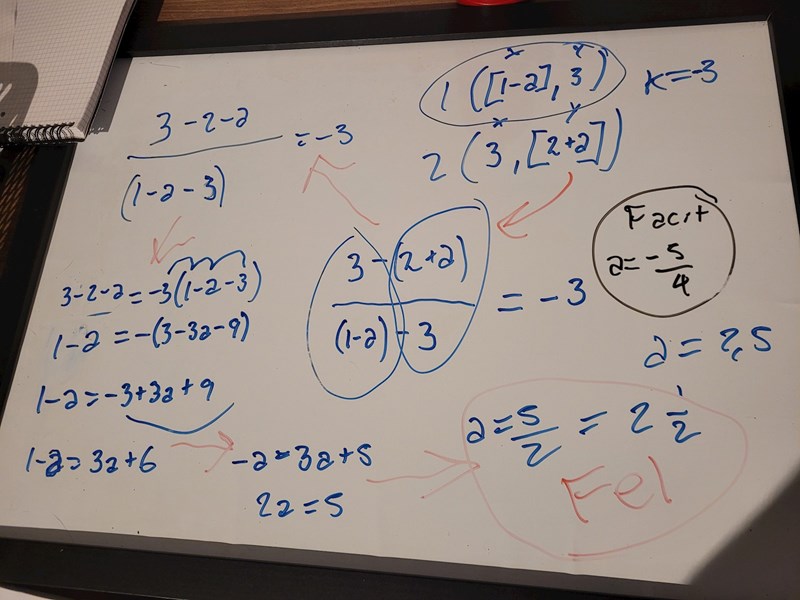 x y
1 ([1-a], 3) K=-3
x y
2 (3, [2+a])
3-2-a
(1-a-3)
=-3
3-(2+a)
(1-a)-3
= -3
Facit
a=-5
4
3-2-a=-3(1-a-3)
1-a=-(3-3a-9)
1-a=-3+3a+9
1-a=3a+6
-a=3a+5
2a=5
a=5/2 = 2 1/2
Fel
a=2,5